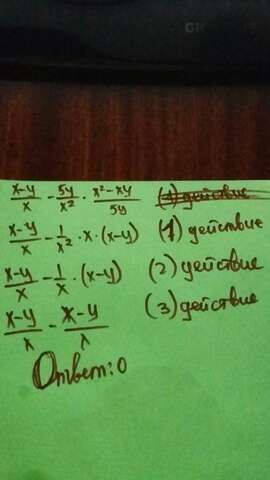 x-y/x - 5y/x² · x²-xy/5y (1) действие
x-y/x - 1/x² · x · (x-y) (1) действие
x-y/x - 1/x · (x-y) (2) действие
x-y/x - x-y/x (3) действие
Ответ: 0